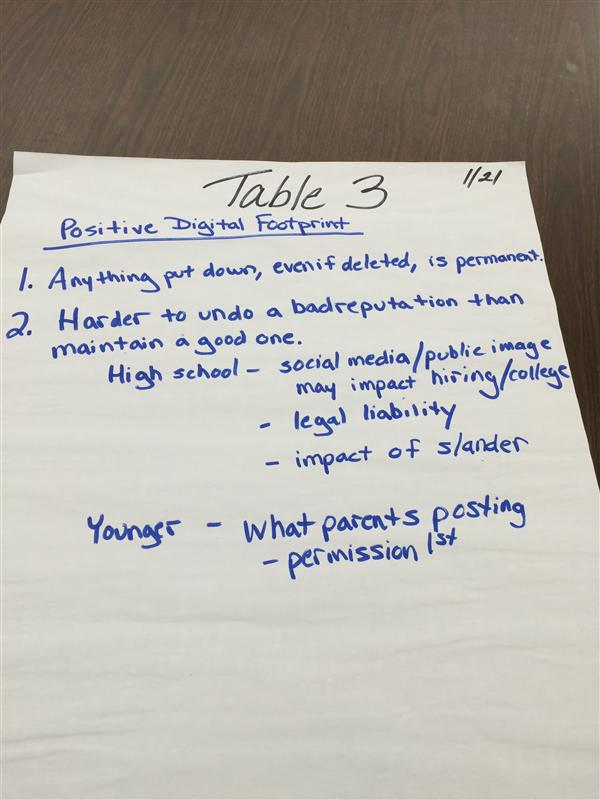 Table 3
1/21
Positive Digital Footprint
1. Anything put down, even if deleted, is permanent.
2. Harder to undo a bad reputation than
maintain a good one.
High school - social media/public image
may impact hiring/college
- legal liability
- impact of slander
Younger - What parents posting
- permission 1st